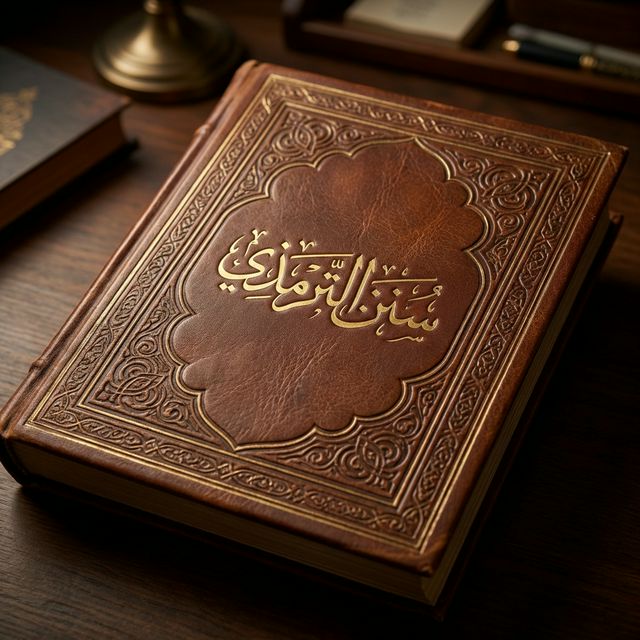 سُنَن التِّرمِذي